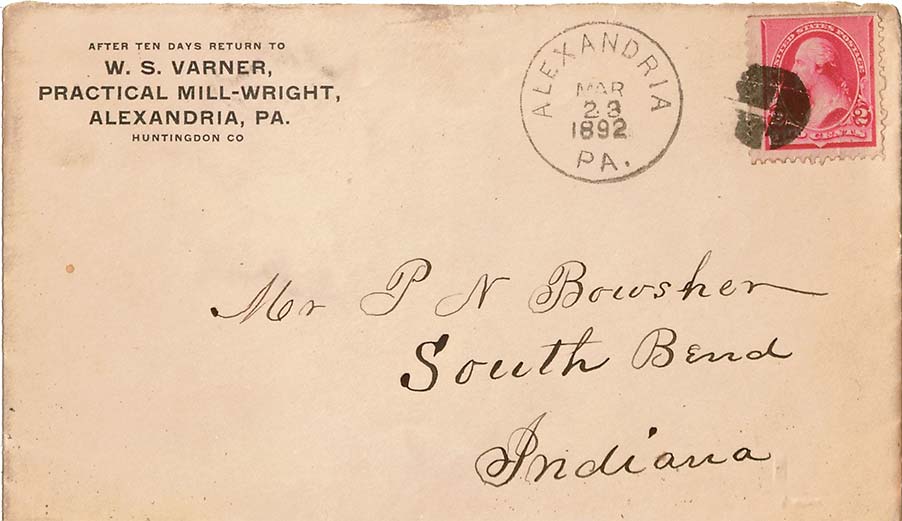 AFTER TEN DAYS RETURN TO
W. S. VARNER,
PRACTICAL MILL-WRIGHT,
ALEXANDRIA, PA.
HUNTINGDON CO
ALEXANDRIA
MAR
23
1892
PA.
UNITED STATES POSTAGE
2
TWO CENTS
Mr P N Bowsher
South Bend
Indiana